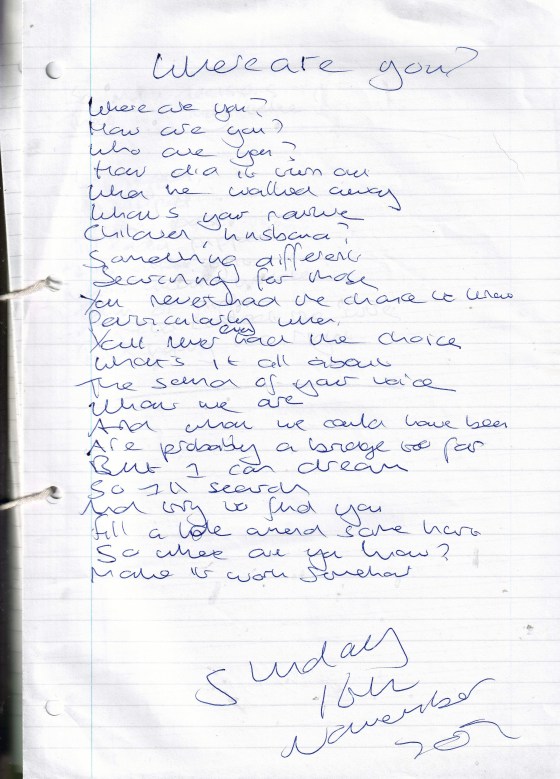 Where are you?
Where are you?
How are you?
Who are you?
How did it turn out
When we walked away
What's your
Children, husband?
Something different
Searching for those
You never had the chance to know
Particularly when
You never even had the choice
What's it all about
The sound of your voice
What we are
And what we could have been
Are probably a bridge too far
But I can dream
So I'll search
And try to find you
Fill a hole mend some
So where are you know?
Make it work somehow
Sunday
16th
November